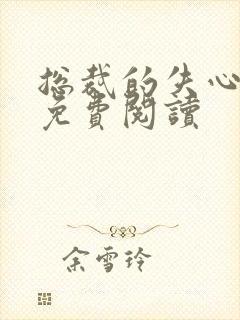 总裁的失心
免費閱讀
余雪玲